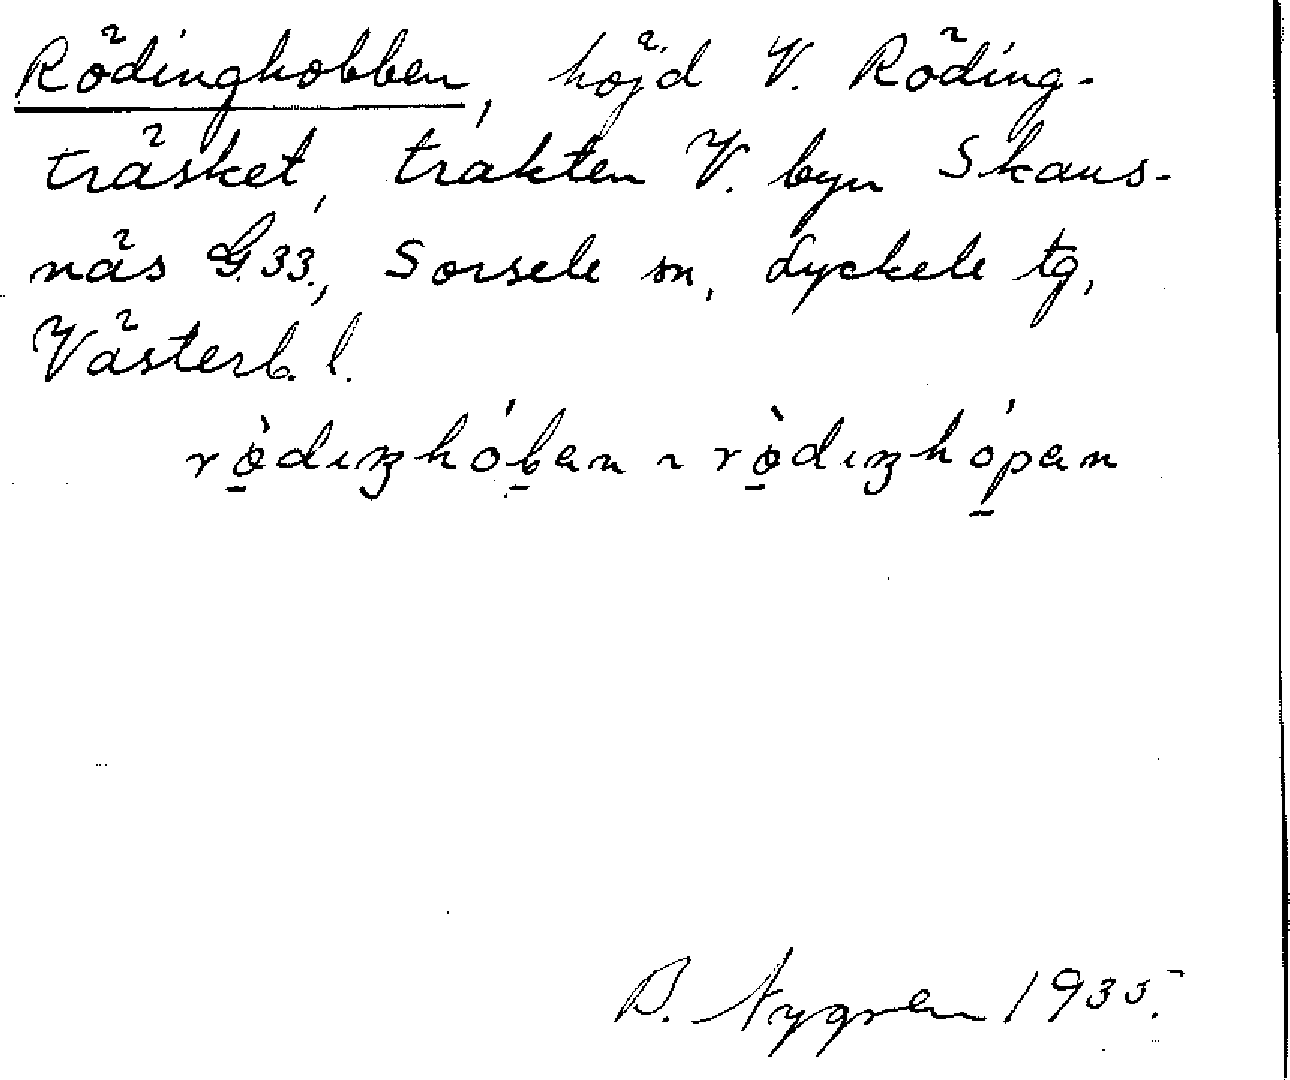 Rödinghobben, höjd V. Röding-
träsket, trakten V. byn Skans-
näs G33., Sorsele sn, Lyckele tg,
Västerb. l.
rø̀dıŋhób̲an ~ rø̀dıŋhóp̲an
B. Nygren 1935.